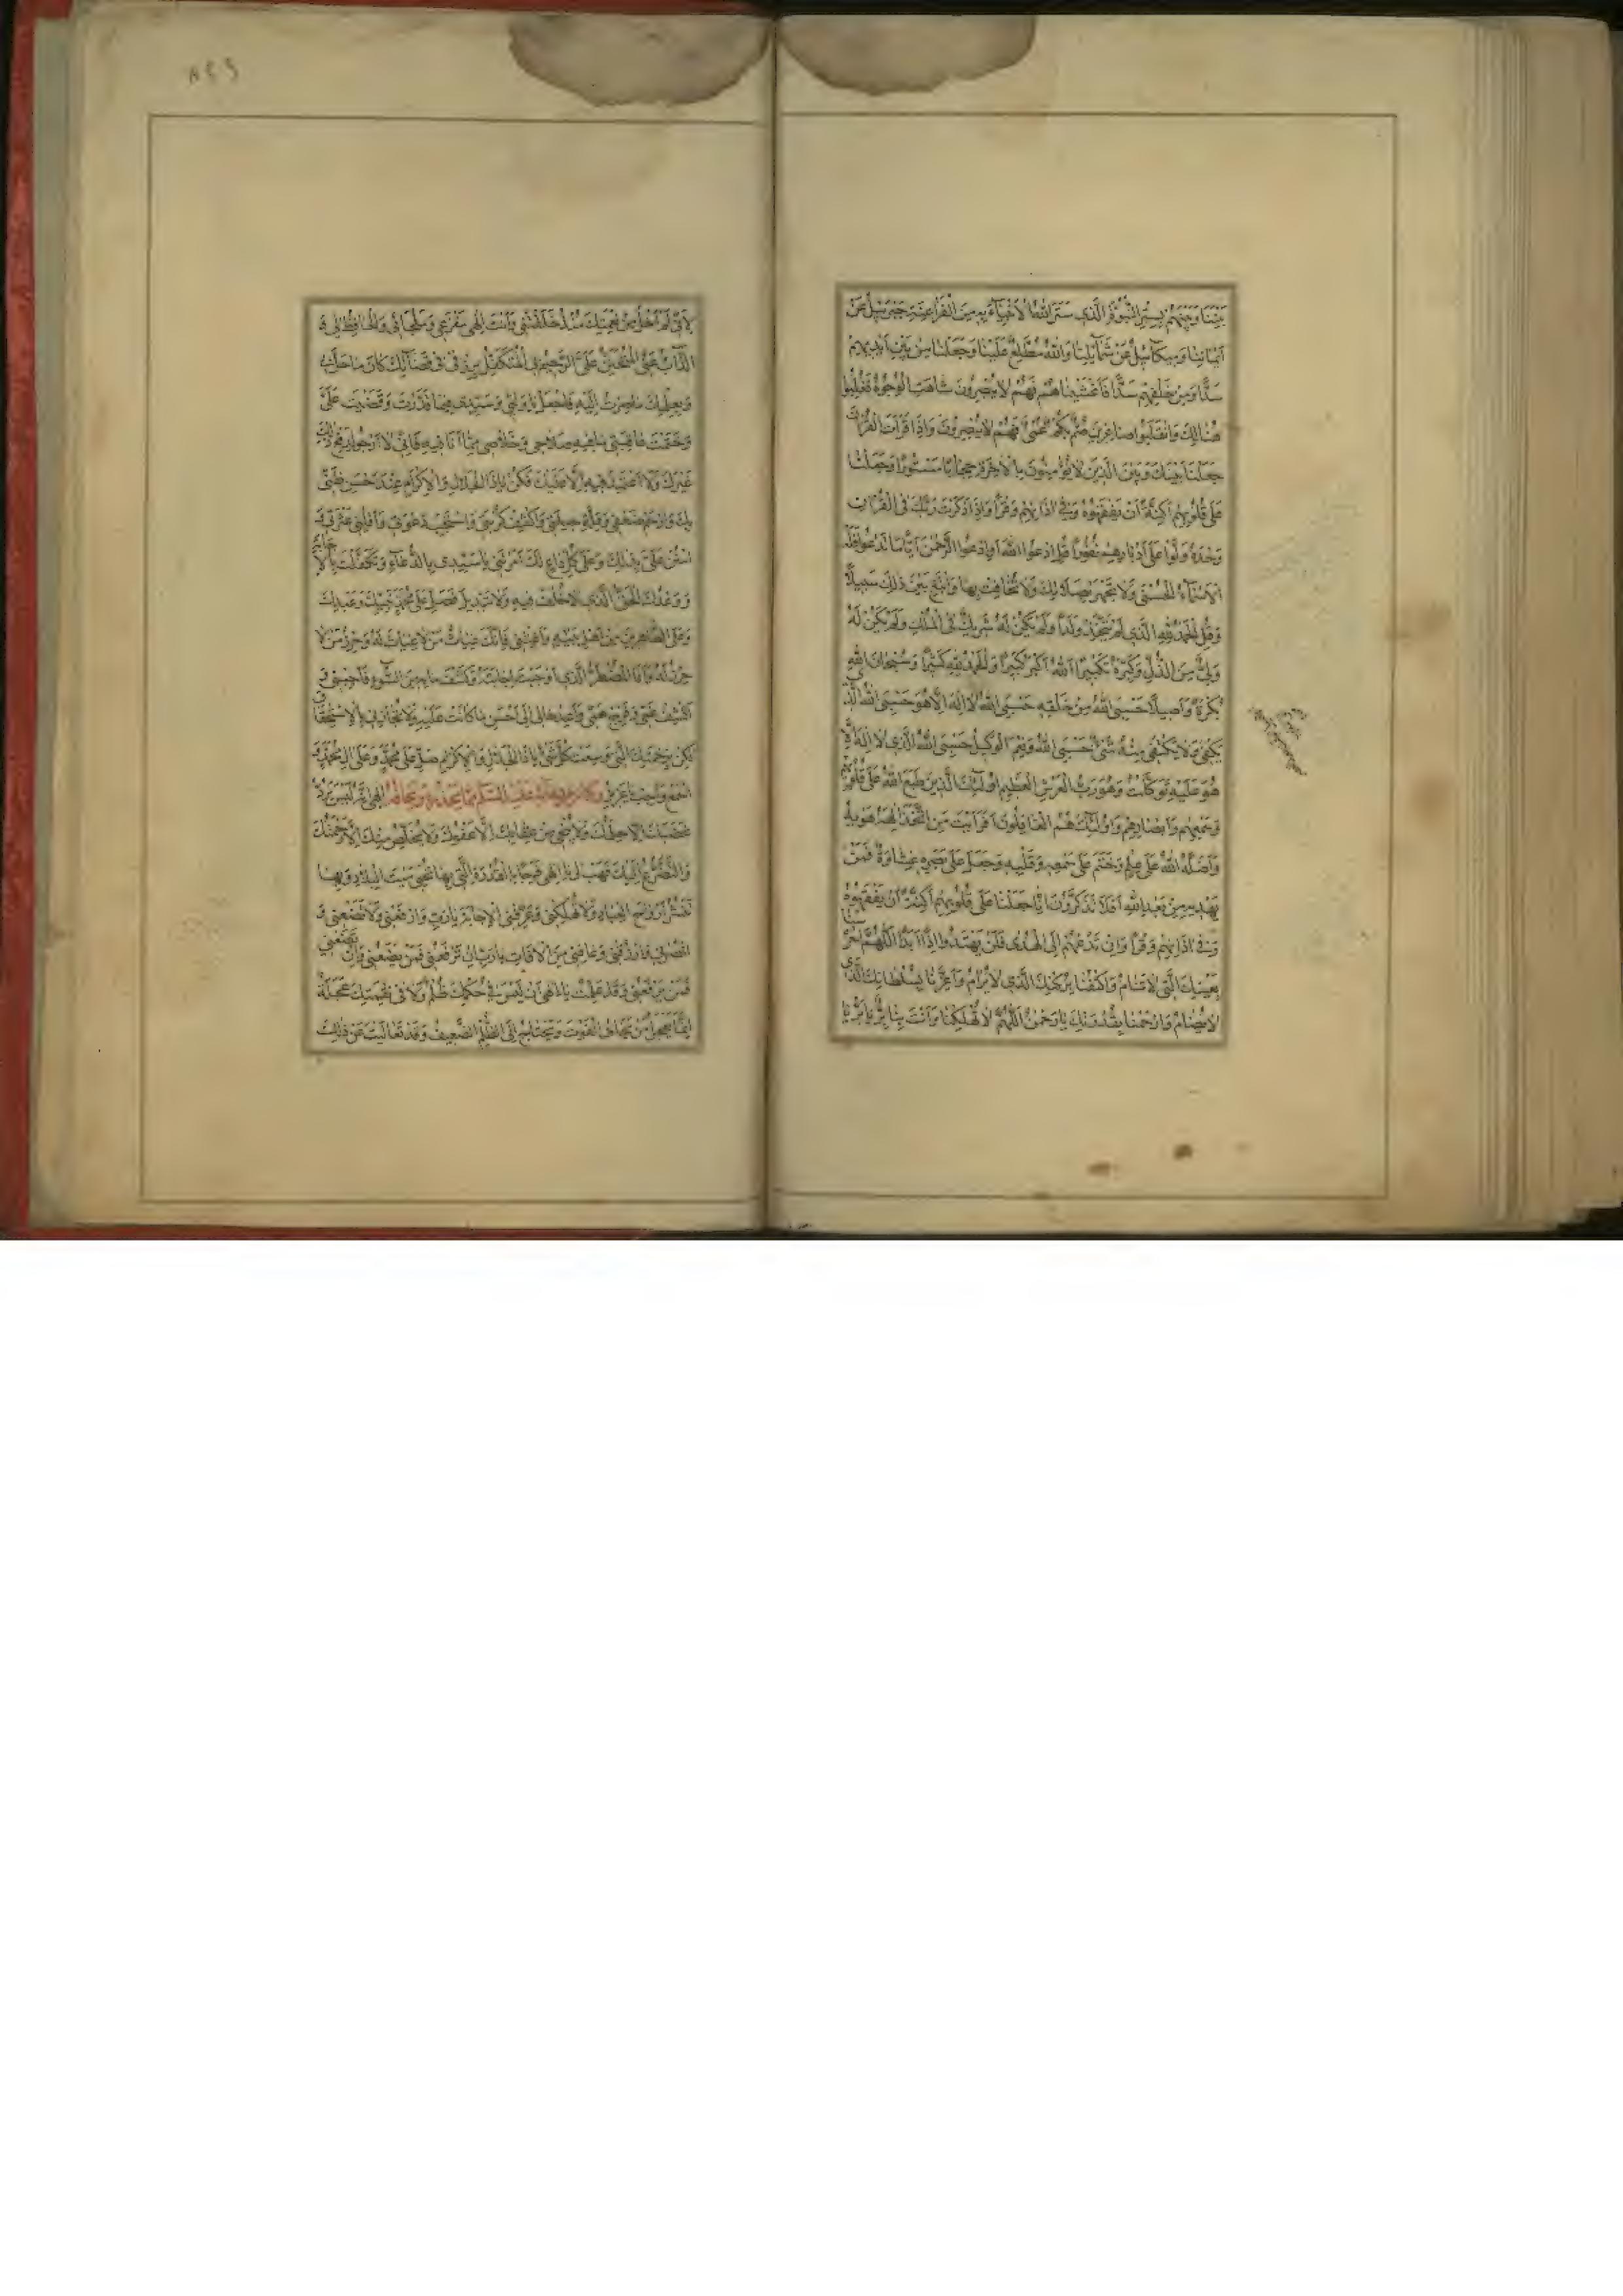 بَيْنَنَا وَبَيْنَهُمْ بِسِتْرِ النُّبُوَّةِ الَّذِي سَتَرَ اللهُ الْأَنْبِيَاءَ بِهِ مِنَ الْفَرَاعِنَةِ جَبْرَئِيلُ عَنْ
أَيْمَانِنَا وَمِيكَآئِيلُ عَنْ شَمَآئِلِنَا وَاللهُ مُطَّلِعٌ عَلَيْنَا وَجَعَلْنَا مِنْ بَيْنِ أَيْدِيهِمْ
سَدًّا وَمِنْ خَلْفِهِمْ سَدًّا فَأَغْشَيْنَاهُمْ فَهُمْ لَا يُبْصِرُونَ شَاهَتِ الْوُجُوهُ فَغُلِبُوا
هُنَالِكَ وَانْقَلَبُوا صَاغِرِينَ صُمٌّ بُكْمٌ عُمْيٌ فَهُمْ لَا يُبْصِرُونَ وَإِذَا قَرَأْتَ الْقُرْآنَ
جَعَلْنَا بَيْنَكَ وَبَيْنَ الَّذِينَ لَا يُؤْمِنُونَ بِالْآخِرَةِ حِجَابًا مَسْتُورًا وَجَعَلْنَا
عَلَى قُلُوبِهِمْ أَكِنَّةً أَنْ يَفْقَهُوهُ وَفِي آذَانِهِمْ وَقْرًا وَإِذَا ذَكَرْتَ رَبَّكَ فِي الْقُرْآنِ
وَحْدَهُ وَلَّوْا عَلَى أَدْبَارِهِمْ نُفُورًا قُلِ ادْعُوا اللهَ أَوِ ادْعُوا الرَّحْمٰنَ أَيًّا مَا تَدْعُوا فَلَهُ
الْأَسْمَآءُ الْحُسْنَى وَلَا تَجْهَرْ بِصَلَاتِكَ وَلَا تُخَافِتْ بِهَا وَابْتَغِ بَيْنَ ذٰلِكَ سَبِيلًا
وَقُلِ الْحَمْدُ لِلهِ الَّذِي لَمْ يَتَّخِذْ وَلَدًا وَلَمْ يَكُنْ لَهُ شَرِيكٌ فِي الْمُلْكِ وَلَمْ يَكُنْ لَهُ
وَلِيٌّ مِنَ الذُّلِّ وَكَبِّرْهُ تَكْبِيرًا اللهُ أَكْبَرُ كَبِيرًا وَالْحَمْدُ لِلهِ كَثِيرًا وَسُبْحَانَ اللهِ
بُكْرَةً وَأَصِيلًا حَسْبِيَ اللهُ مِنْ خَلْقِهِ حَسْبِيَ اللهُ لَا إِلٰهَ إِلَّا هُوَ حَسْبِيَ اللهُ الَّذِي
يَكْفِي وَلَا يَكْفِي مِنْهُ شَيْءٌ حَسْبِيَ اللهُ وَنِعْمَ الْوَكِيلُ حَسْبِيَ اللهُ الَّذِي لَا إِلٰهَ إِلَّا
هُوَ عَلَيْهِ تَوَكَّلْتُ وَهُوَ رَبُّ الْعَرْشِ الْعَظِيمِ أُولٰئِكَ الَّذِينَ طَبَعَ اللهُ عَلَى قُلُوبِهِمْ
وَسَمْعِهِمْ وَأَبْصَارِهِمْ وَأُولٰئِكَ هُمُ الْغَافِلُونَ أَفَرَأَيْتَ مَنِ اتَّخَذَ إِلٰهَهُ هَوَاهُ
وَأَضَلَّهُ اللهُ عَلَى عِلْمٍ وَخَتَمَ عَلَى سَمْعِهِ وَقَلْبِهِ وَجَعَلَ عَلَى بَصَرِهِ غِشَاوَةً فَمَنْ
يَهْدِيهِ مِنْ بَعْدِ اللهِ أَفَلَا تَذَكَّرُونَ إِنَّا جَعَلْنَا عَلَى قُلُوبِهِمْ أَكِنَّةً أَنْ يَفْقَهُوهُ
وَفِي آذَانِهِمْ وَقْرًا وَإِنْ تَدْعُهُمْ إِلَى الْهُدَى فَلَنْ يَهْتَدُوا إِذًا أَبَدًا اللّٰهُمَّ احْرُسْنَا
بِعَيْنِكَ الَّتِي لَا تَنَامُ وَاكْنُفْنَا بِرُكْنِكَ الَّذِي لَا يُرَامُ وَأَعِزَّنَا بِسُلْطَانِكَ الَّذِي
لَا يُضَامُ وَارْحَمْنَا بِقُدْرَتِكَ يَا رَحْمٰنُ اللّٰهُمَّ لَا تُهْلِكْنَا وَأَنْتَ بِنَا بَرٌّ يَا بَرُّ يَا
لِأَنِّي لَمْ أَخْلُ مِنْ نِعْمَتِكَ مُنْذُ خَلَقْتَنِي وَأَنْتَ إِلٰهِي مَفْزَعِي وَمَلْجَائِي وَالْحَافِظُ لِي وَ
الذَّآبُّ عَنِّي الْمُتَحَنِّنُ عَلَيَّ الرَّحِيمُ بِي الْمُتَكَفِّلُ بِرِزْقِي فِي قَضَآئِكَ كَانَ مَا حَلَّ بِي
وَبِعِلْمِكَ مَا صِرْتُ إِلَيْهِ فَاجْعَلْ يَا وَلِيِّي وَسَيِّدِي فِيمَا قَدَّرْتَ وَقَضَيْتَ عَلَيَّ
وَحَتَمْتَ عَافِيَتِي وَمَا فِيهِ صَلَاحِي وَخَلَاصِي مِمَّا أَنَا فِيهِ فَإِنِّي لَا أَرْجُو لِدَفْعِ ذٰلِكَ
غَيْرَكَ وَلَا أَعْتَمِدُ فِيهِ إِلَّا عَلَيْكَ فَكُنْ يَا ذَا الْجَلَالِ وَالْإِكْرَامِ عِنْدَ حُسْنِ ظَنِّي
بِكَ وَارْحَمْ ضَعْفِي وَقِلَّةَ حِيلَتِي وَاكْشِفْ كُرْبَتِي وَاسْتَجِبْ دَعْوَتِي وَأَقِلْنِي عَثْرَتِي وَ
امْنُنْ عَلَيَّ بِذٰلِكَ وَعَلَى كُلِّ دَاعٍ لَكَ أَمَرْتَنِي يَا سَيِّدِي بِالدُّعَآءِ وَتَكَفَّلْتَ بِالْإِجَابَةِ
وَوَعْدُكَ الْحَقُّ الَّذِي لَا خُلْفَ فِيهِ وَلَا تَبْدِيلَ فَصَلِّ عَلَى مُحَمَّدٍ نَبِيِّكَ وَعَبْدِكَ
وَعَلَى الطَّاهِرِينَ مِنْ أَهْلِ بَيْتِهِ وَأَغِثْنِي فَإِنَّكَ غِيَاثُ مَنْ لَا غِيَاثَ لَهُ وَحِرْزُ مَنْ لَا
حِرْزَ لَهُ وَأَنَا الْمُضْطَرُّ الَّذِي أَوْجَبْتَ إِجَابَتَهُ وَكَشْفَ مَا بِهِ مِنَ السُّوٓءِ فَأَجِبْنِي وَ
اكْشِفْ غَمِّي وَفَرِّجْ هَمِّي وَأَعِدْ حَالِي إِلَى أَحْسَنِ مَا كَانَتْ عَلَيْهِ وَلَا تُجَازِنِي بِالْاِسْتِحْقَاقِ
لٰكِنْ بِرَحْمَتِكَ الَّتِي وَسِعَتْ كُلَّ شَيْءٍ يَا ذَا الْجَلَالِ وَالْإِكْرَامِ صَلِّ عَلَى مُحَمَّدٍ وَعَلَى آلِ مُحَمَّدٍ وَ
اسْمَعْ وَأَجِبْ يَا عَزِيزُ وَكَانَ مِنْ دُعَائِهِ عَلَيْهِ السَّلَامُ مِمَّا يَحْذَرُهُ وَيَخَافُهُ إِلٰهِي إِنَّهُ لَيْسَ يَرُدُّ
غَضَبَكَ إِلَّا حِلْمُكَ وَلَا يُنْجِي مِنْ عِقَابِكَ إِلَّا عَفْوُكَ وَلَا يُخَلِّصُ مِنْكَ إِلَّا رَحْمَتُكَ
وَالتَّضَرُّعُ إِلَيْكَ فَهَبْ لِي يَا إِلٰهِي فَرَجًا بِالْقُدْرَةِ الَّتِي بِهَا تُحْيِي مَيْتَ الْبِلَادِ وَبِهَا
تَنْشُرُ أَرْوَاحَ الْعِبَادِ وَلَا تُهْلِكْنِي وَعَرِّفْنِي الْإِجَابَةَ يَا رَبِّ وَارْفَعْنِي وَلَا تَضَعْنِي وَ
انْصُرْنِي وَارْزُقْنِي وَعَافِنِي مِنَ الْآفَاتِ يَا رَبِّ إِنْ تَرْفَعْنِي فَمَنْ يَضَعُنِي وَإِنْ تَضَعْنِي
فَمَنْ يَرْفَعُنِي وَقَدْ عَلِمْتُ يَا إِلٰهِي أَنْ لَيْسَ فِي حُكْمِكَ ظُلْمٌ وَلَا فِي نَقِمَتِكَ عَجَلَةٌ
إِنَّمَا يَعْجَلُ مَنْ يَخَافُ الْفَوْتَ وَيَحْتَاجُ إِلَى الظُّلْمِ الضَّعِيفُ وَقَدْ تَعَالَيْتَ عَنْ ذٰلِكَ